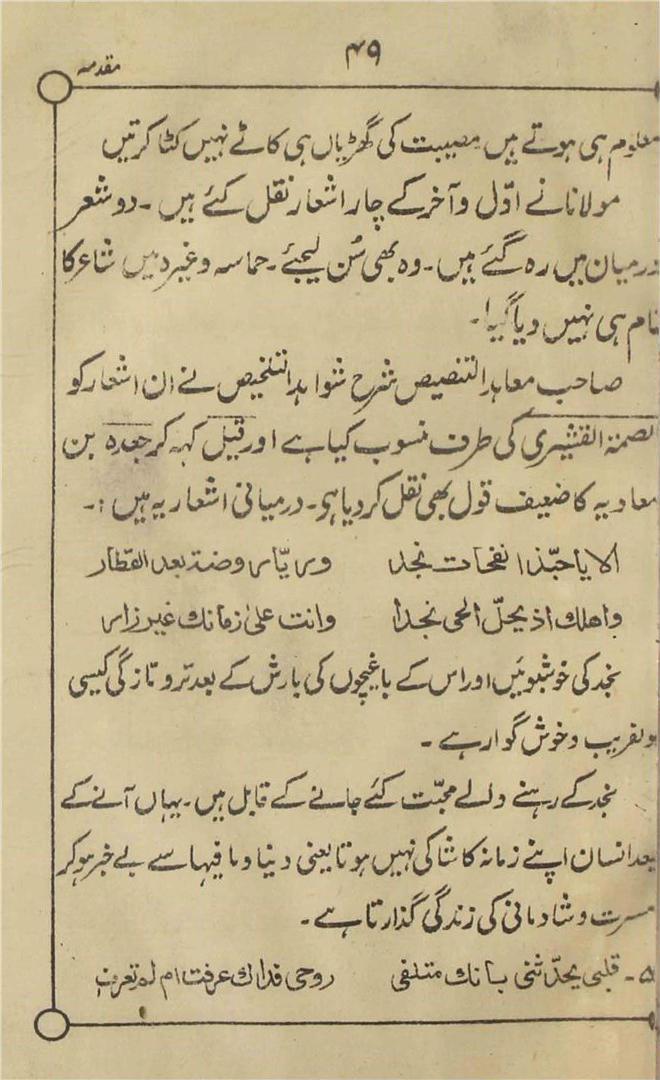 ۴۹
مقدمہ
معلوم ہی ہوتے ہیں مصیبت کی گھڑیاں ہی کاٹے نہیں کٹا کرتیں
مولانا نے اوّل و آخر کے چار اشعار نقل کئے ہیں ۔ دو شعر
درمیان میں رہ گئے ہیں ۔ وہ بھی سُن لیجئے ۔ حماسہ وغیرہ میں شاعر کا
نام ہی نہیں دیا گیا ۔
صاحب معاہد التنصیص شرح شواہد التلخیص نے ان اشعار کو
الصمۃ القشیری کی طرف منسوب کیا ہے اور قیل کہہ کر جعدہ بن
معاویہ کا ضعیف قول بھی نقل کر دیا ہو ۔ درمیانی اشعار یہ ہیں :۔
الا یا حبّذا نفحات نجد وریّا روضۃ بعد القطار
واھلك اذ یحلّ الحی نجدا وانت علیٰ زمانك غیر زار
نجد کی خوشبوئیں اور اس کے باغیچوں کی بارش کے بعد تر و تازگی کیسی
دلفریب و خوش گوار ہے ۔
نجد کے رہنے والے محبّت کئے جانے کے قابل ہیں ۔ یہاں آنے کے
بعد انسان اپنے زمانہ کا شاکی نہیں ہوتا یعنی دنیا و ما فیہا سے بے خبر ہو کر
مسرت و شادمانی کی زندگی گذارتا ہے ۔
۵ ۔ قلبی یحدّثنی بانك متلفی روحی فداك عرفت ام لم تعرف